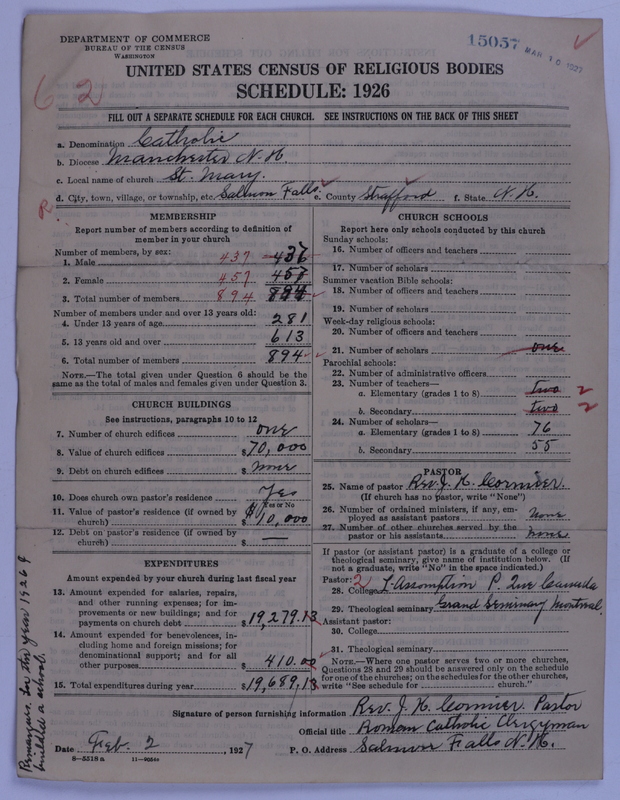 DEPARTMENT OF COMMERCE
BUREAU OF THE CENSUS
WASHINGTON
15057 MAR 10 1927
UNITED STATES CENSUS OF RELIGIOUS BODIES
SCHEDULE: 1926
62
FILL OUT A SEPARATE SCHEDULE FOR EACH CHURCH. SEE INSTRUCTIONS ON THE BACK OF THIS SHEET
a. Denomination Catholic
b. Diocese Manchester N.H.
c. Local name of church St. Mary.
d. City, town, village, or township, etc. Salmon Falls. e. County Strafford f. State N.H.
R
MEMBERSHIP
Report number of members according to definition of
member in your church
Number of members, by sex:
1. Male 437 437
2. Female 457 457
3. Total number of members 894 894
Number of members under and over 13 years old:
4. Under 13 years of age 281
5. 13 years old and over 613
6. Total number of members 894
NOTE.—The total given under Question 6 should be the
same as the total of males and females given under Question 3.
CHURCH BUILDINGS
See instructions, paragraphs 10 to 12
7. Number of church edifices one
8. Value of church edifices $70,000
9. Debt on church edifices $ none
10. Does church own pastor's residence Yes
Yes or No
11. Value of pastor's residence (if owned by
church) $10,000
12. Debt on pastor's residence (if owned by
church) $ —
EXPENDITURES
Amount expended by your church during last fiscal year
13. Amount expended for salaries, repairs,
and other running expenses; for im-
provements or new buildings; and for
payments on church debt $19,279.13
14. Amount expended for benevolences, in-
cluding home and foreign missions; for
denominational support; and for all
other purposes $ 410.00
15. Total expenditures during year $19,689.13
CHURCH SCHOOLS
Report here only schools conducted by this church
Sunday schools:
16. Number of officers and teachers
17. Number of scholars
Summer vacation Bible schools:
18. Number of officers and teachers
19. Number of scholars
Week-day religious schools:
20. Number of officers and teachers
21. Number of scholars one
Parochial schools:
22. Number of administrative officers
23. Number of teachers—
a. Elementary (grades 1 to 8) two 2
b. Secondary two 2
24. Number of scholars—
a. Elementary (grades 1 to 8) 76
b. Secondary 55
PASTOR
25. Name of pastor Rev. J. H. Cormier.
(If church has no pastor, write "None")
26. Number of ordained ministers, if any, em-
ployed as assistant pastors none
27. Number of other churches served by the
pastor or his assistants none
If pastor (or assistant pastor) is a graduate of a college or
theological seminary, give name of institution below. (If
not a graduate, write "No" in the space indicated.)
Pastor: 2
28. College L'Assomption P. Que Canada
29. Theological seminary Grand Seminary Montreal.
Assistant pastor:
30. College
31. Theological seminary
NOTE.—Where one pastor serves two or more churches,
Questions 28 and 29 should be answered only on the schedule
for one of the churches; on the schedules for the other churches,
write "See schedule for church."
Signature of person furnishing information Rev. J. H. Cormier. Pastor
Official title Roman Catholic Clergyman
Date Feb. 2, 1927 P. O. Address Salmon Falls N.H.
8—5518 a
for the year 1926 I
a school.